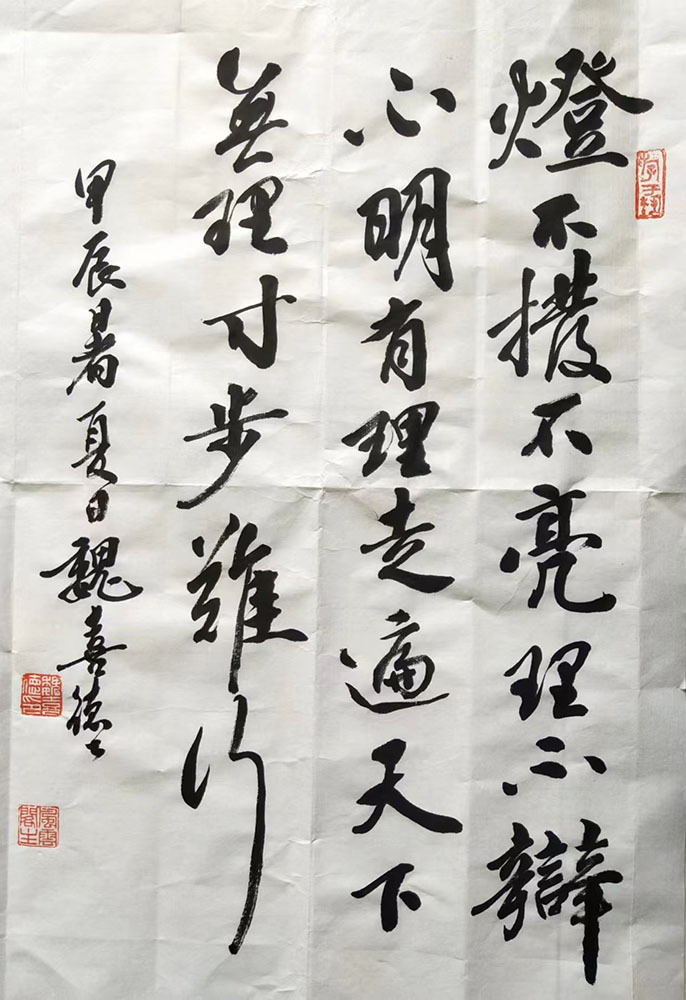 燈不撥不亮理不辯
不明有理走遍天下
無理寸步難行
甲辰暑夏日魏喜德
魏喜德印